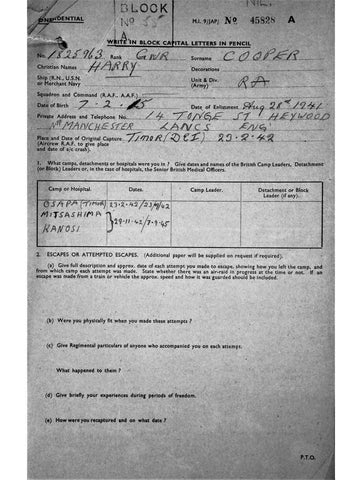 BLOCK
CONFIDENTIAL
No 55
A
M.I. 9/JAP/ No 45828 A
WRITE IN BLOCK CAPITAL LETTERS IN PENCIL
No. 1525963 Rank GNR Surname COOPER
Christian Names HARRY Decorations
Ship (R.N., U.S.N. or Merchant Navy Unit & Div. (Army) RA
Squadron and Command (R.A.F., A.A.F.)
Date of Birth 7.2.15 Date of Enlistment Aug 28st 1941
Private Address and Telephone No. 14 TONGE ST HEYWOOD
Nr MANCHESTER LANCS ENG
Place and Date of Original Capture TIMOR (DEI) 23.2.42
(Aircrew R.A.F. to give place
and date of a/c crash).
1. What camps, detachments or hospitals were you in ? Give dates and names of the British Camp Leaders, Detachment
(or Block) Leaders or, in the case of hospitals, the Senior British Medical Officers.
Camp or Hospital. Dates. Camp Leader. Detachment or Block
Leader (if any).
OSAPA (TIMOR) 23.2.42
MITSASHIMA
29.11.42/7.9.45
KANOSI
2. ESCAPES OR ATTEMPTED ESCAPES. (Additional paper will be supplied on request if required).
(a) Give full description and approx. date of each attempt you made to escape, showing how you left the camp, and
from which camp each attempt was made. State whether there was an air-raid in progress at the time or not. If an
escape was made from a train or vehicle the approx. speed and how it was guarded should be included.
(b) Were you physically fit when you made these attempts ?
(c) Give Regimental particulars of anyone who accompanied you on each attempt.
What happened to them ?
(d) Give briefly your experiences during periods of freedom.
(e) How were you recaptured and on what date ?
P.T.O.